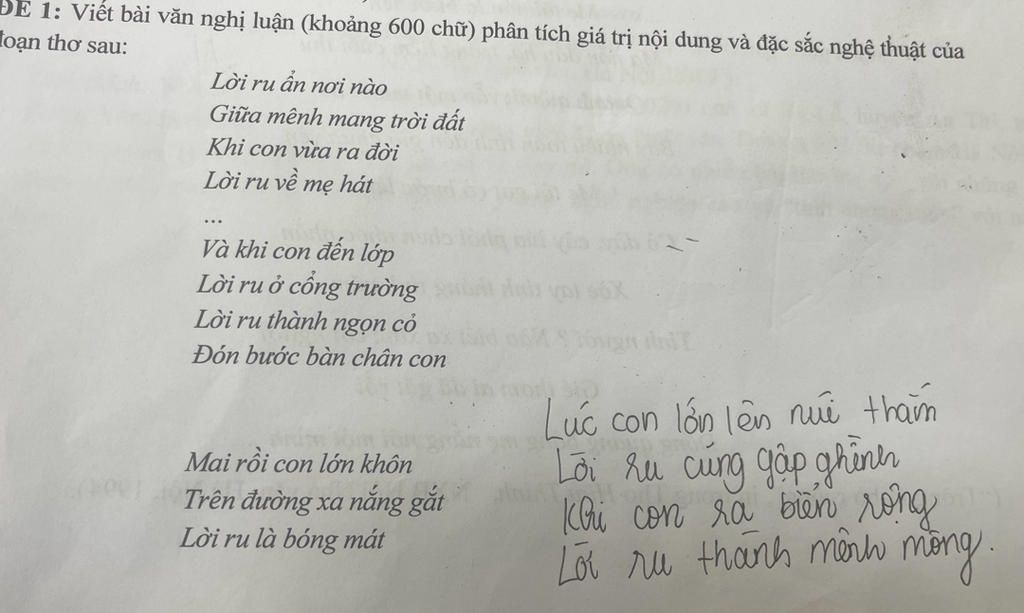 ĐỀ 1: Viết bài văn nghị luận (khoảng 600 chữ) phân tích giá trị nội dung và đặc sắc nghệ thuật của
đoạn thơ sau:
Lời ru ẩn nơi nào
Giữa mênh mang trời đất
Khi con vừa ra đời
Lời ru về mẹ hát
...
Và khi con đến lớp
Lời ru ở cổng trường
Lời ru thành ngọn cỏ
Đón bước bàn chân con
Mai rồi con lớn khôn
Trên đường xa nắng gắt
Lời ru là bóng mát
Lúc con lớn lên núi thẳm
Lời ru cũng gập ghềnh
Khi con ra biển rộng
Lời ru thành mênh mông.